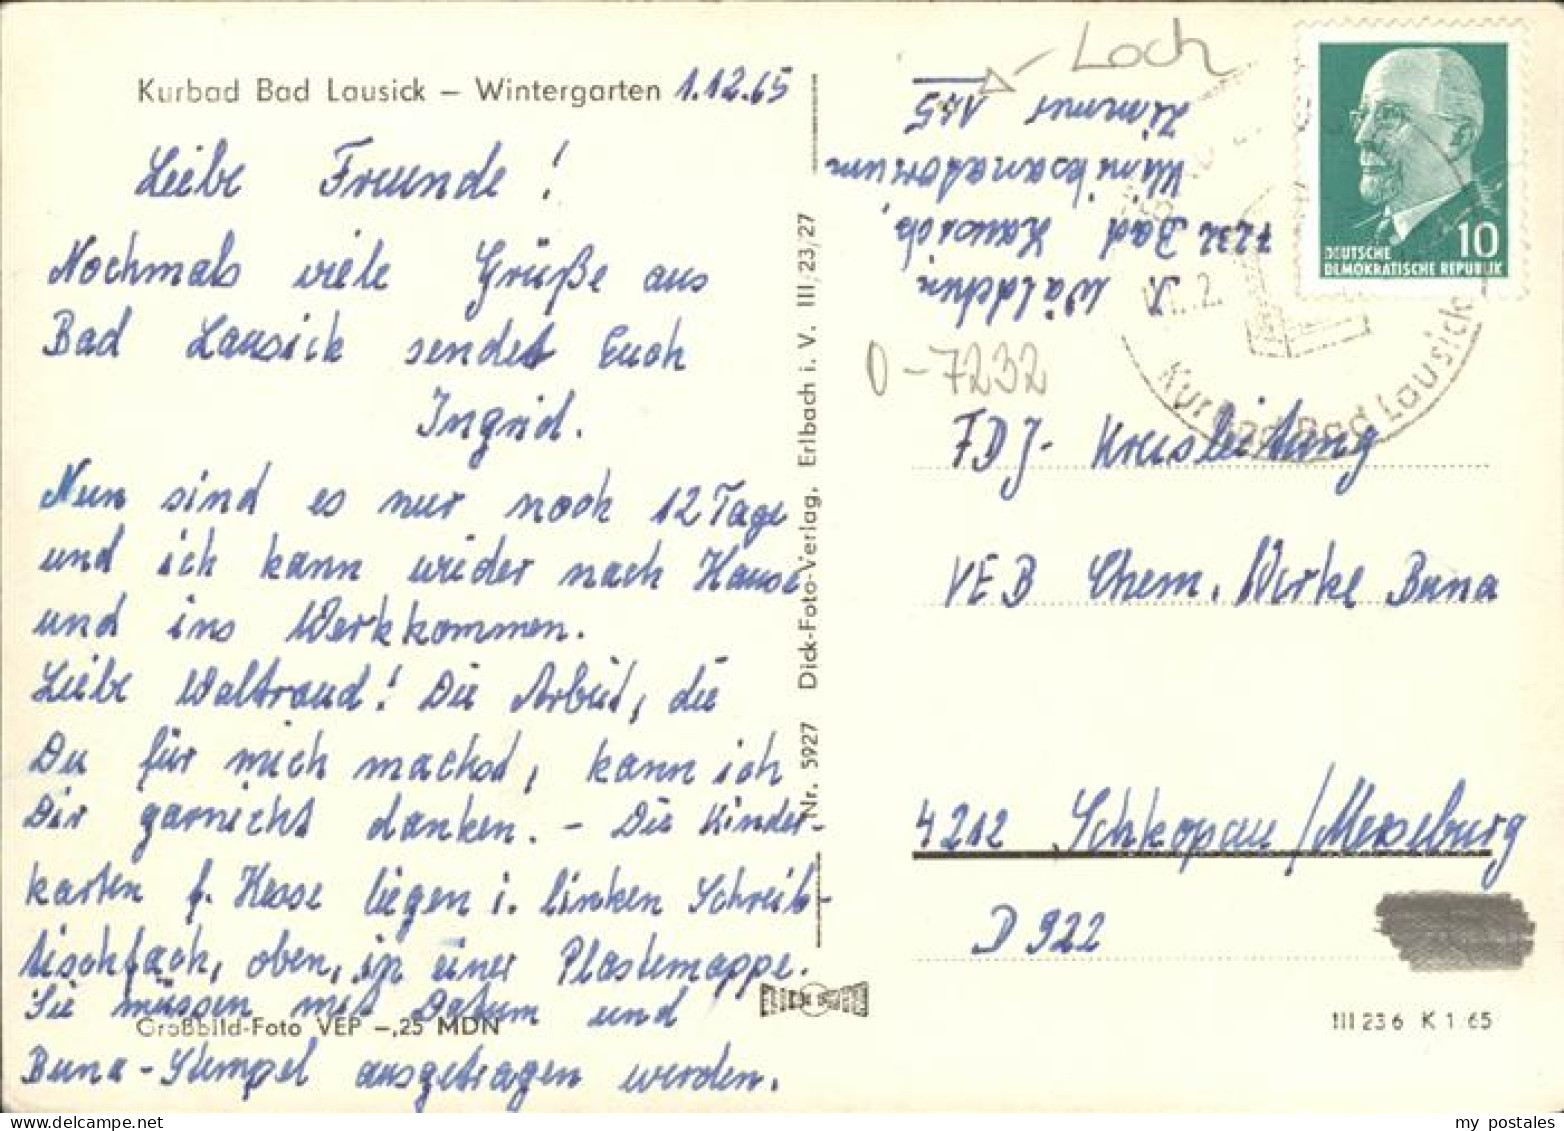 Kurbad Bad Lausick – Wintergarten 1.12.65
Liebe Freunde!
Nochmals viele Grüße aus
Bad Lausick sendet Euch
Ingrid.
Nun sind es nur noch 12 Tage
und ich kann wieder nach Hause
und ins Werk kommen.
Liebe Waltraud! Die Arbeit, die
Du für mich machst, kann ich
Dir garnicht danken. – Die Kinder-
karten f. Hesse liegen i. linken Schreib-
tischfach, oben, in einer Plastemappe.
Sie müssen mit Datum und
Buna-Stempel ausgetragen werden.
Großbild-Foto VEP –,25 MDN
Nr. 5927 Dick-Foto-Verlag, Erlbach i. V. III/23/27
Loch
I. Wäldchin
7232 Bad Lausick,
Kliniksanatorium
Zimmer 145
0-7232
DEUTSCHE
DEMOKRATISCHE REPUBLIK
10
Kurbad Bad Lausick
FDJ- Kreisleitung
VEB Chem. Werke Buna
4212 Schkopau/Merseburg
D 922
III 23 6 K 1 65
my postales